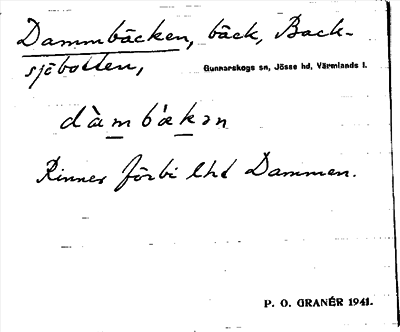 Dammbäcken, bäck, Back-
sjöbotten, Gunnarskogs sn, Jösse hd, Värmlands l.
dàm bǽkən
Rinner förbi lhd Dammen.
P. O. GRANÉR 1941.